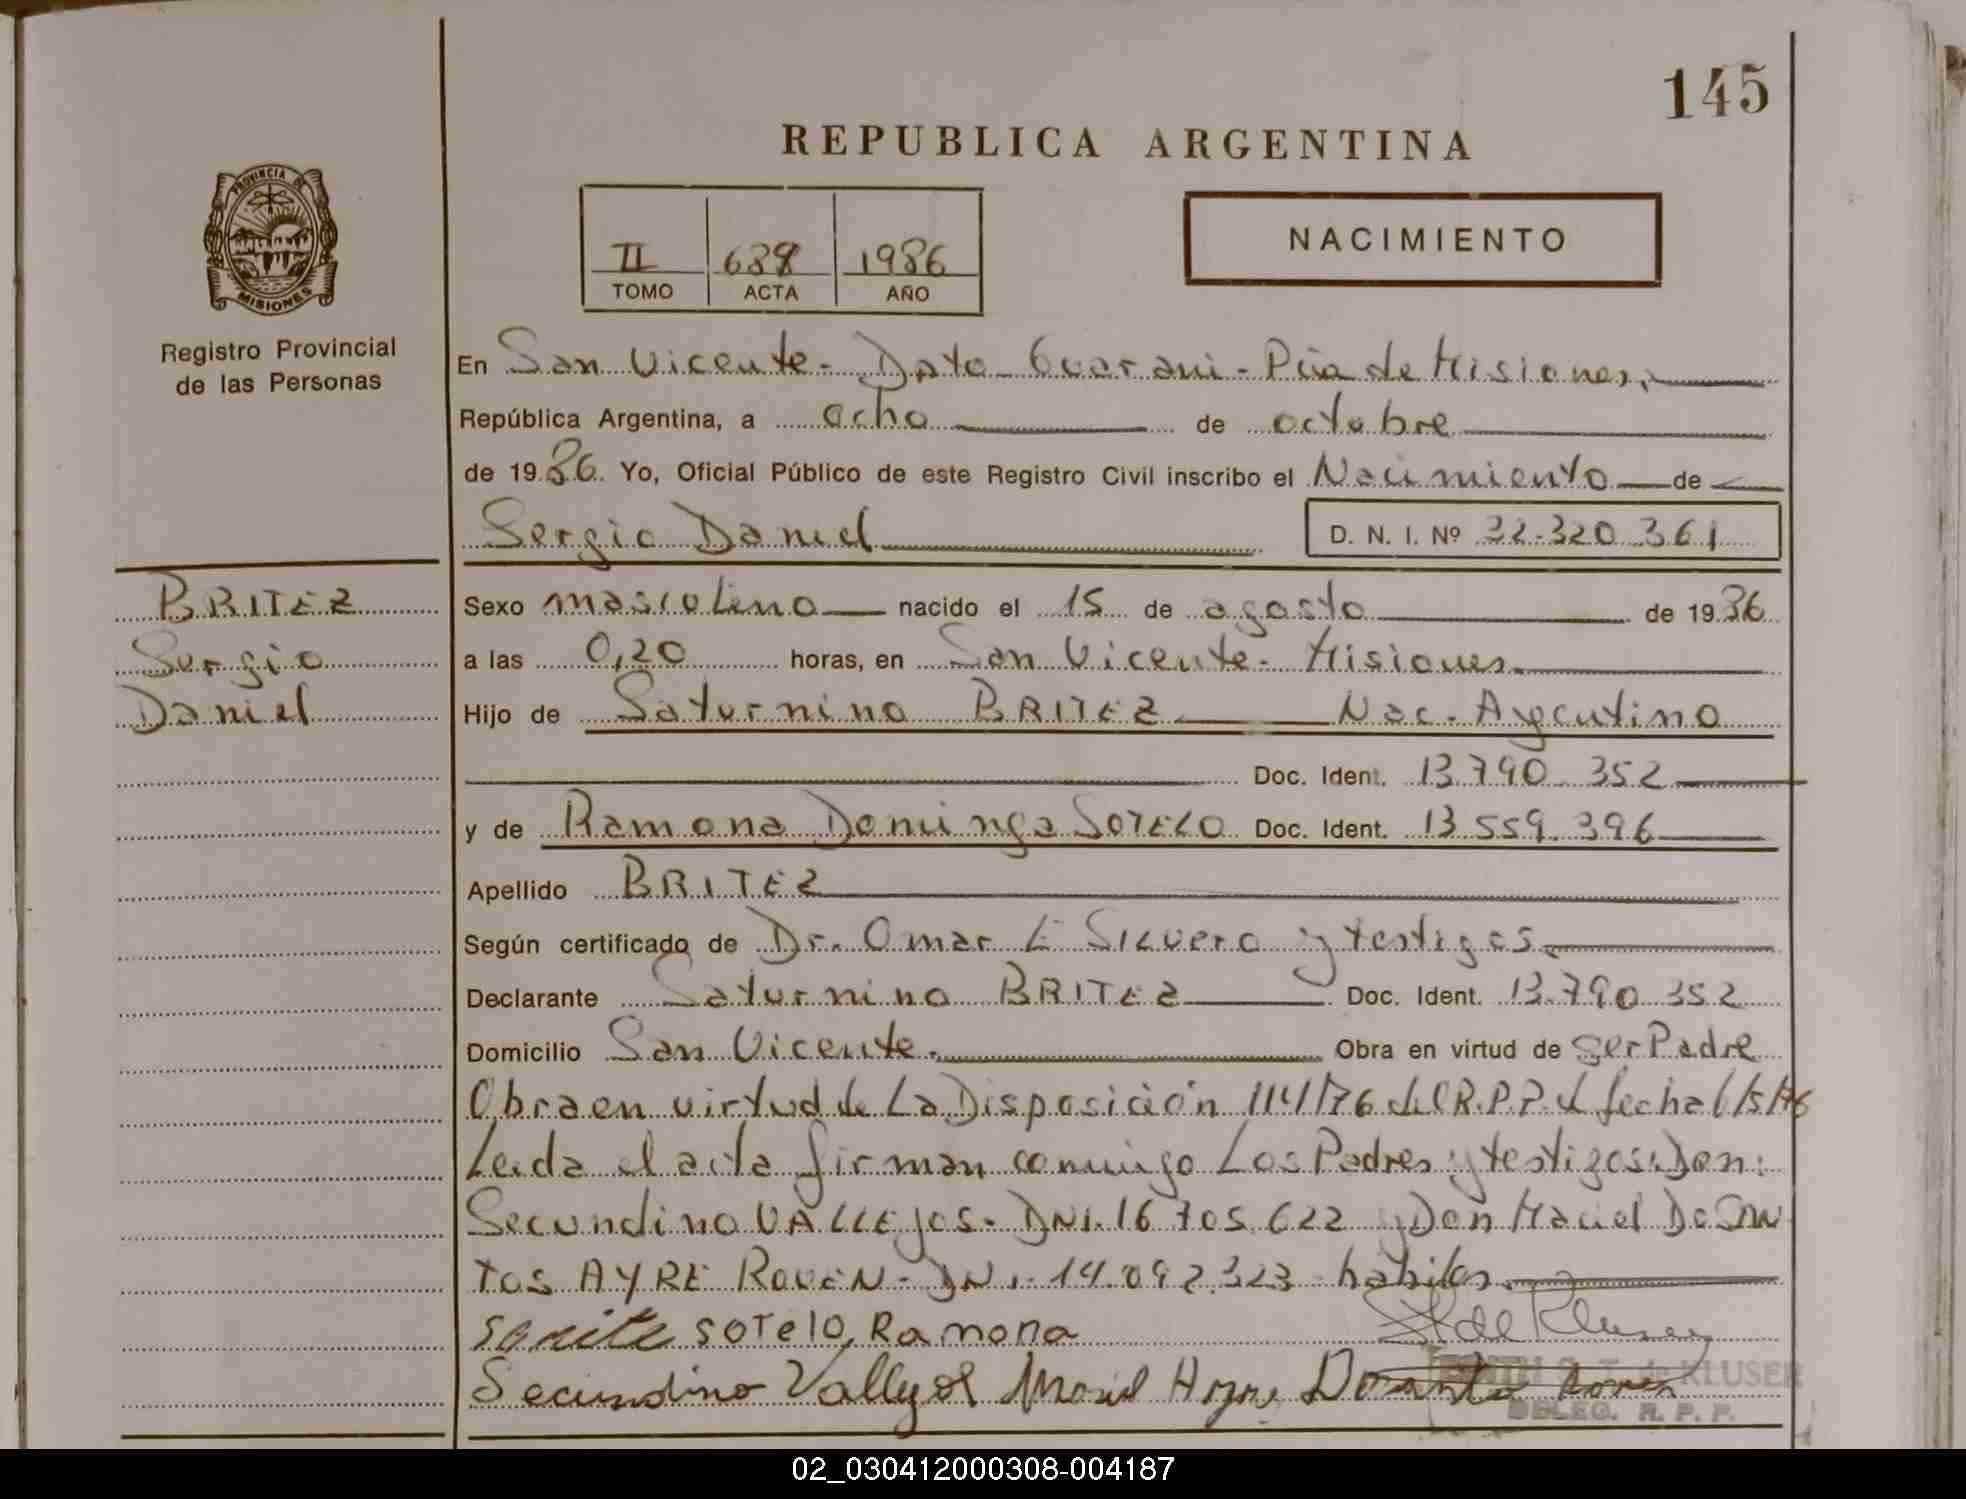 145
REPUBLICA ARGENTINA
PROVINCIA DE
MISIONES
II 1986
TOMO ACTA AÑO
NACIMIENTO
Registro Provincial
de las Personas
En San Vicente - Dpto Guarani - Pcia de Misiones.
República Argentina, a ocho de octubre
de 1986. Yo, Oficial Público de este Registro Civil inscribo el Nacimiento de
Sergio Daniel D. N. I. Nº 32.320.361
BRITEZ
Sergio
Daniel
Sexo masculino nacido el 15 de agosto de 1986
a las 0,20 horas, en San Vicente - Misiones.
Hijo de Saturnino BRITEZ Nac. Argentino
Doc. Ident. 13.790.352
y de Ramona Dominga SOTELO Doc. Ident. 13.559.396
Apellido BRITEZ
Según certificado de Dr. Omar E SILVERO y testigos.
Declarante Saturnino BRITEZ Doc. Ident. 13.790.352
Domicilio San Vicente. Obra en virtud de ser Padre
Obra en virtud de La Disposición 114/76 del R.P.P. de fecha 6/5/76
Leida el acta firman conmigo Los Padres y testigos: Don:
Secundino VALLEJOS - DNI. 16.705.622 y Don Maciel DoSAN
TOS AYRE ROVEN - DNI. 14.092.323 habiles.
SOTelO, Ramona
Secundino
de KLUSER
DELEG. R. P. P.
02_030412000308-004187